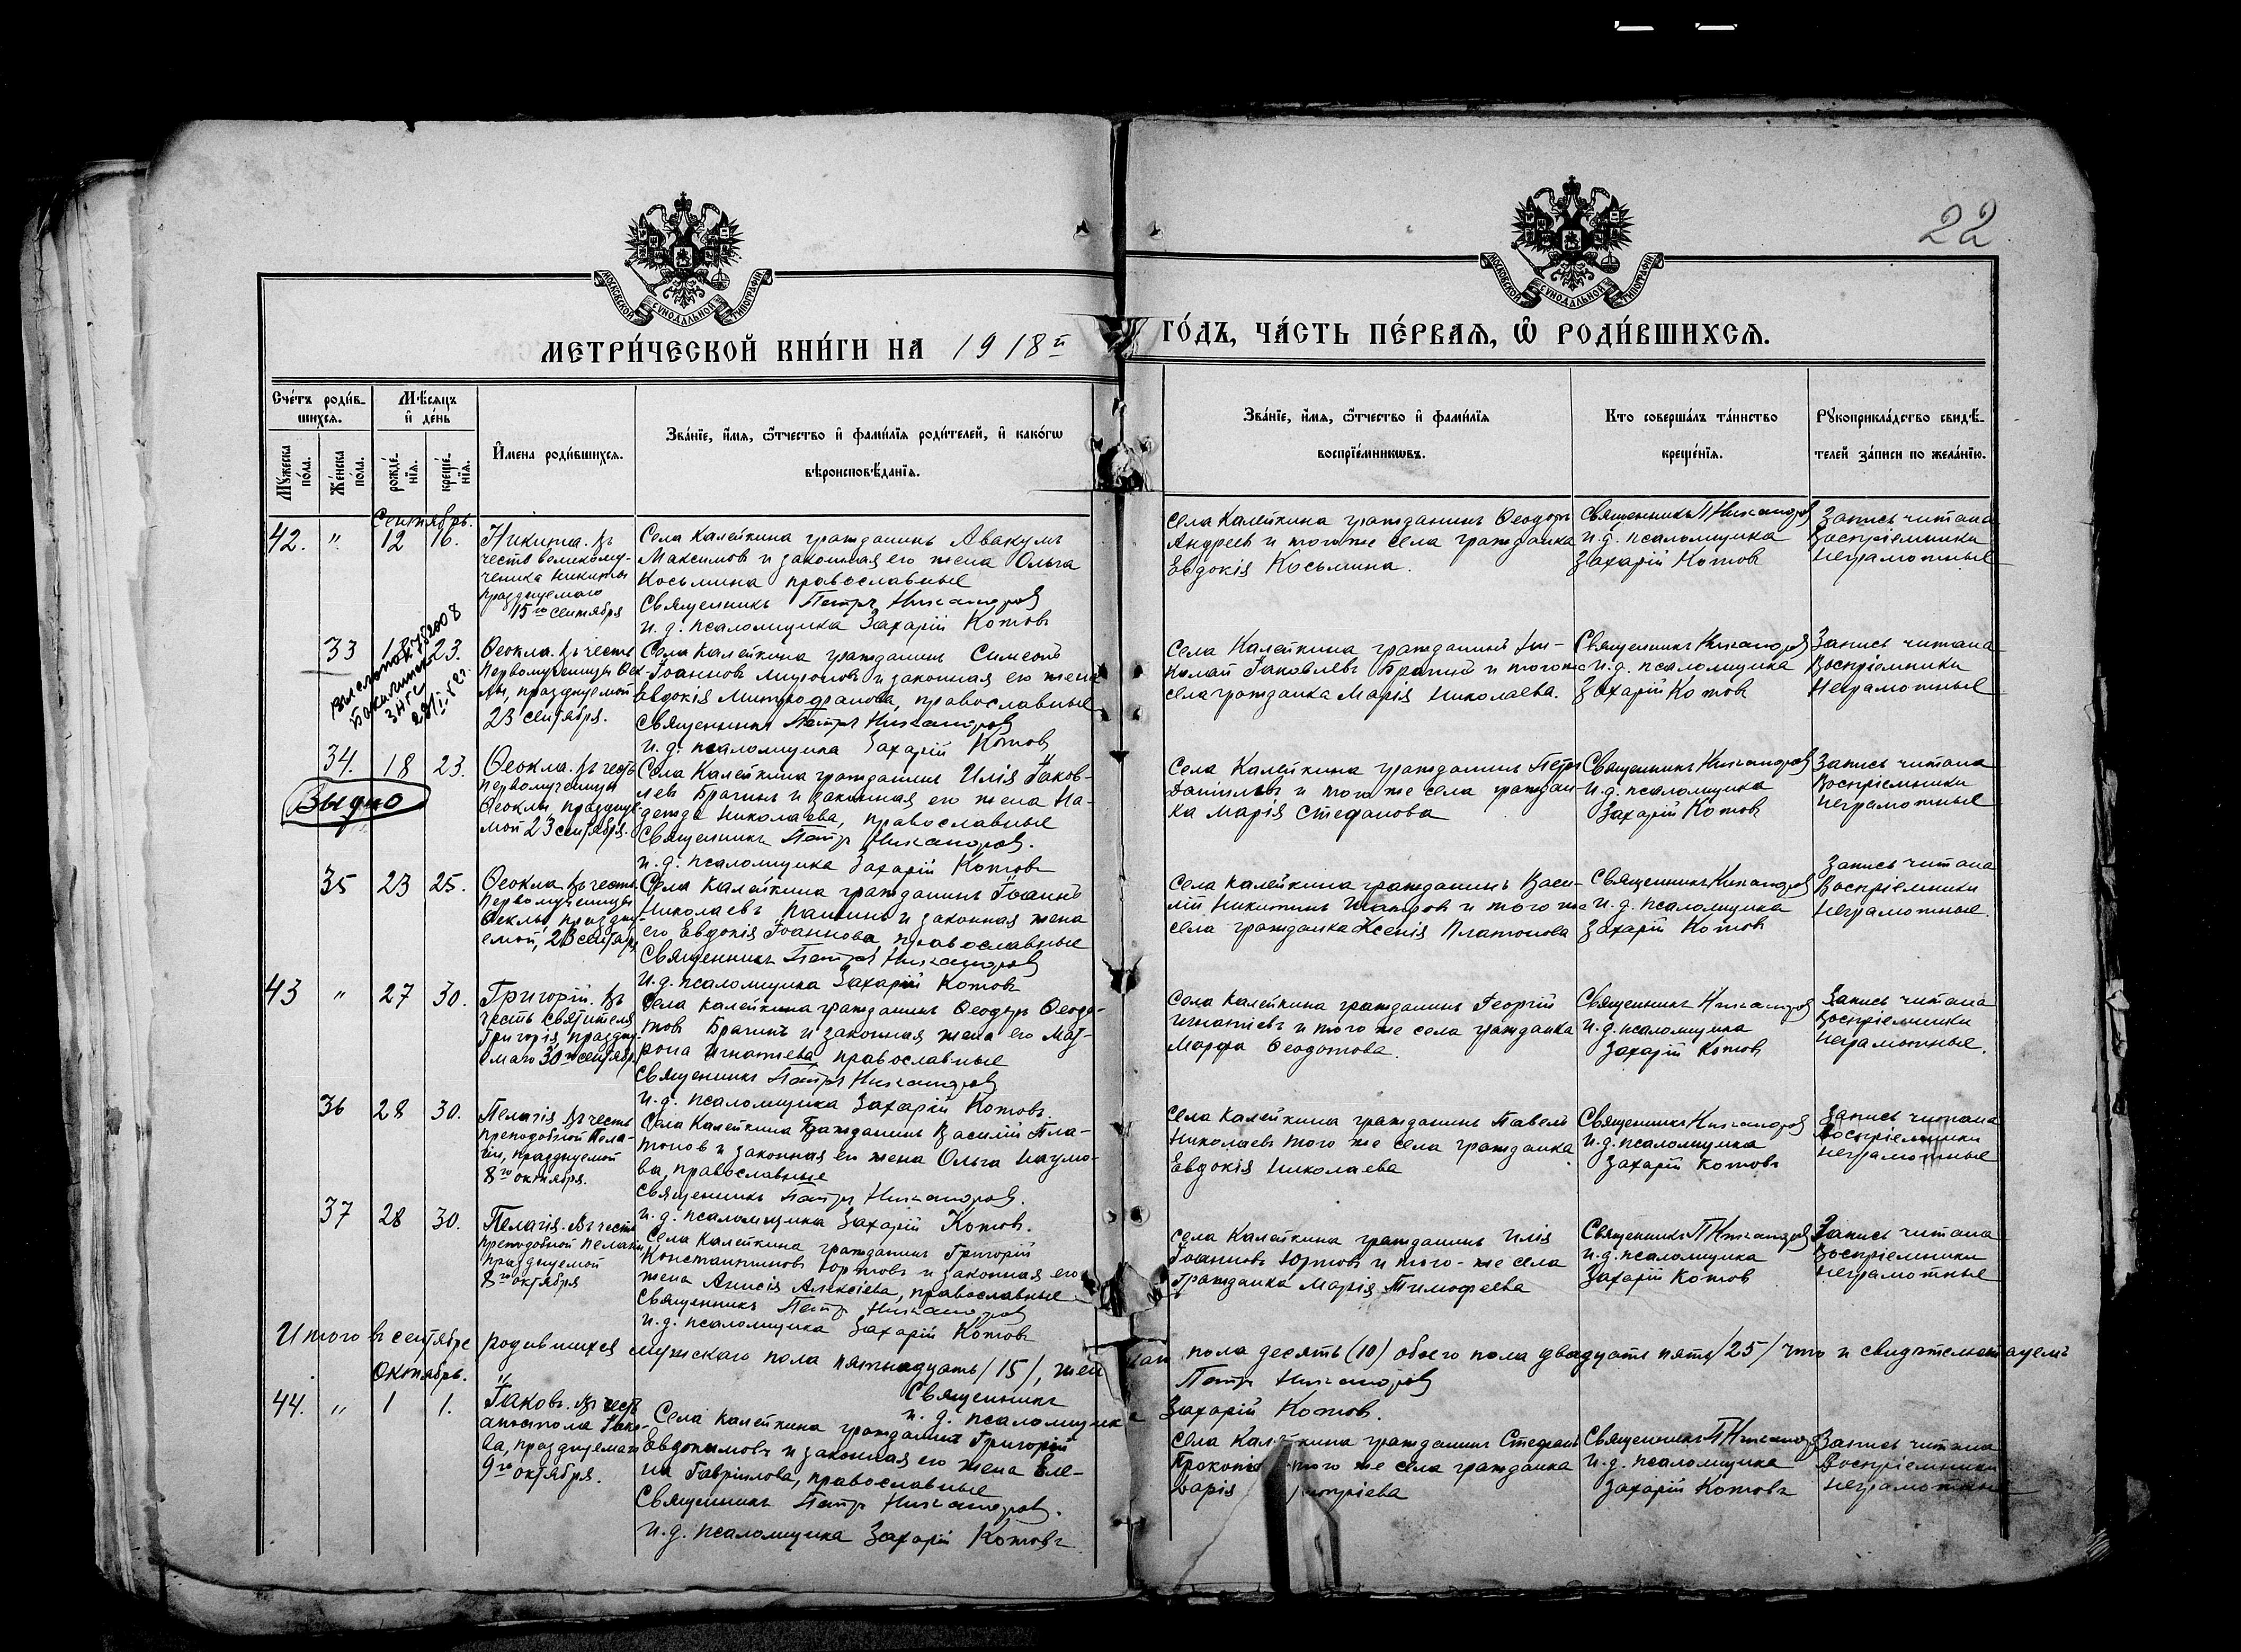 22
МОСКОВСКОЙ СУНОДАЛЬНОЙ ТИПОГРАФІИ
МОСКОВСКОЙ СУНОДАЛЬНОЙ ТИПОГРАФІИ
МЕТРИ́ЧЕСКОЙ КНИ́ГИ НА 1918й ГО́ДЪ, ЧА́СТЬ ПЕ́РВАѦ, Ѡ РОДИ́ВШИХСѦ.
Сче́тъ роди́в-
шихсѧ.
Мѣ́сѧцъ
и҆ де́нь
Мꙋ́жеска по́ла.
Же́нска по́ла.
рожде́-
нїѧ.
креще́-
нїѧ.
И҆мена роди́вшихсѧ.
Зва́нїе, и҆́мѧ, ѻ҆́тчество и҆ фами́лїѧ роди́телей, и҆ како́гѡ
вѣроисповѣ́данїѧ.
Зва́нїе, и҆́мѧ, ѻ҆́тчество и҆ фами́лїѧ
воспрїе́мникѡвъ.
Кто соверша́лъ та́инство
креще́нїѧ.
Рꙋкоприкла́дство свидѣ́-
телей за́писи по жела́нїю.
Сентябрь.
42. " 12 16.
Никита. Въ
честь великому-
ченика Никиты
празднуемаго
15го сентября
Села Калейкина гражданинъ Авакумъ
Максимовъ и законная его жена Ольга
Косьмина православные
Священникъ Петръ Никандров
и.д. псаломщика Захарій Котовъ
Села Калейкина гражданинъ Ѳеодоръ
Андреевъ и того же села гражданка
Евдокія Косьмина.
Священникъ П Никандров
и.д. псаломщика
Захарій Котовъ
Запись читана
Воспріемники
неграмотные
33 18 23.
28/I-52г.
Ѳеокла. Въ честь
Первомученицы Ѳек-
лы, празднуемой
23 сентября.
Села Калейкина гражданинъ Симеонъ
Іоанновъ и законная его жена
Евдокія Митрофанова, православные
Священникъ Петръ Никандров
и.д. псаломщика Захарій Котовъ
Села Калейкина гражданинъ Ни-
колай Іаковлевъ Брагинъ и того же
села гражданка Марія Николаева.
Священникъ Никандров
и.д. псаломщика
Захарій Котовъ
Запись читана
Воспріемники
Неграмотные
34. 18 23.
Выдано
Ѳеокла. Въ честь
первомученицы
Ѳеоклы, празднуе-
мой 23 сентября.
Села Калейкина гражданинъ Илія Іаков-
левъ Брагинъ и законная его жена На-
дежда Николаева, православные
Священникъ Петръ Никандров.
и.д. псаломщика Захарій Котовъ
Села Калейкина гражданинъ Петръ
Даниловъ и того же села граждан-
ка Марія Стефанова
Священникъ Никандров
и.д. псаломщика
Захарій Котовъ
Запись читана
Воспріемники
неграмотные
35 23 25.
Ѳеокла. Въ честь
Первомученицы
Ѳеклы, праздну-
емой, 23 сентяб.
Села Калейкина гражданинъ Іоаннъ
Николаевъ Пашинъ и законная жена
его Евдокія Іоаннова, православные
Священникъ Петръ Никандров
и.д. псаломщика Захарій Котовъ
Села Калейкина гражданинъ Васи-
лій Никитинъ Шатровъ и того же
села гражданка Ксенія Платонова
Священникъ Никандров
и.д. псаломщика
Захарій Котовъ
Запись читана
Воспріемники
неграмотные.
43 " 27 30.
Григорій. Въ
честь святителя
Григорія, праздну-
емаго 30го сентябр
Села Калейкина гражданинъ Ѳеодоръ Ѳеодо-
товъ Брагинъ и законная жена его Мат-
рона Игнатіева, православные
Священникъ Петръ Никандров
и.д. псаломщика Захарій Котовъ.
Села Калейкина гражданинъ Георгій
Игнатіевъ и того же села гражданка
Марфа Ѳеодотова.
Священникъ Никандров
и.д. псаломщика
Захарій Котовъ
Запись читана
Воспріемники
неграмотные.
36 28 30.
Пелагія. Въ честь
преподобной Пела-
гіи, празднуемой
8го октября.
Села Калейкина гражданинъ Василій Пла-
тоновъ и законная его жена Ольга Наумо-
ва, православные
Священникъ Петръ Никандров.
и.д. псаломщика Захарій Котовъ.
Села Калейкина гражданинъ Павелъ
Николаевъ того же села гражданка
Евдокія Николаева
Священникъ Никандров
и.д. псаломщика
Захарій Котовъ
Запись читана
Воспріемники
неграмотные
37 28 30.
Пелагія. Въ честь
преподобной Пелагіи,
празднуемой
8го октября
Села Калейкина гражданинъ Григорій
Константиновъ Юртовъ и законная его
жена Анисія Алексіева, православные
Священникъ Петръ Никандров
и.д. псаломщика Захарій Котовъ
Села Калейкина гражданинъ Илія
Іоанновъ Юртовъ и того-же села
Гражданка Марія Тимофеева
Священникъ П Никандров
и.д. псаломщика
Захарій Котовъ
Запись читана
Воспріемники
неграмотные
Итого въ сентябре родившихся мужскаго пола пятнадцать /15/, жен пола десять (10) обоего пола двадцать пять /25/ что и свидѣтельствуемъ
Священникъ Петръ Никандров
и.д. псаломщика Захарій Котовъ.
Октябрь.
44. " 1 1.
Іаковъ. Въ честь
апостола Іако-
ва, празднуемаго
9го октября.
Села Калейкина гражданинъ Григорій
Евдокимовъ и законная его жена Еле-
на Гавріилова, православные
Священникъ Петръ Никандров.
и.д. псаломщика Захарій Котовъ
Села Калейкина гражданинъ Стефанъ
того же села гражданка
Дарія
Священникъ П Никандров
и.д. псаломщика
Захарій Котовъ
Запись читана
Воспріемники
неграмотные